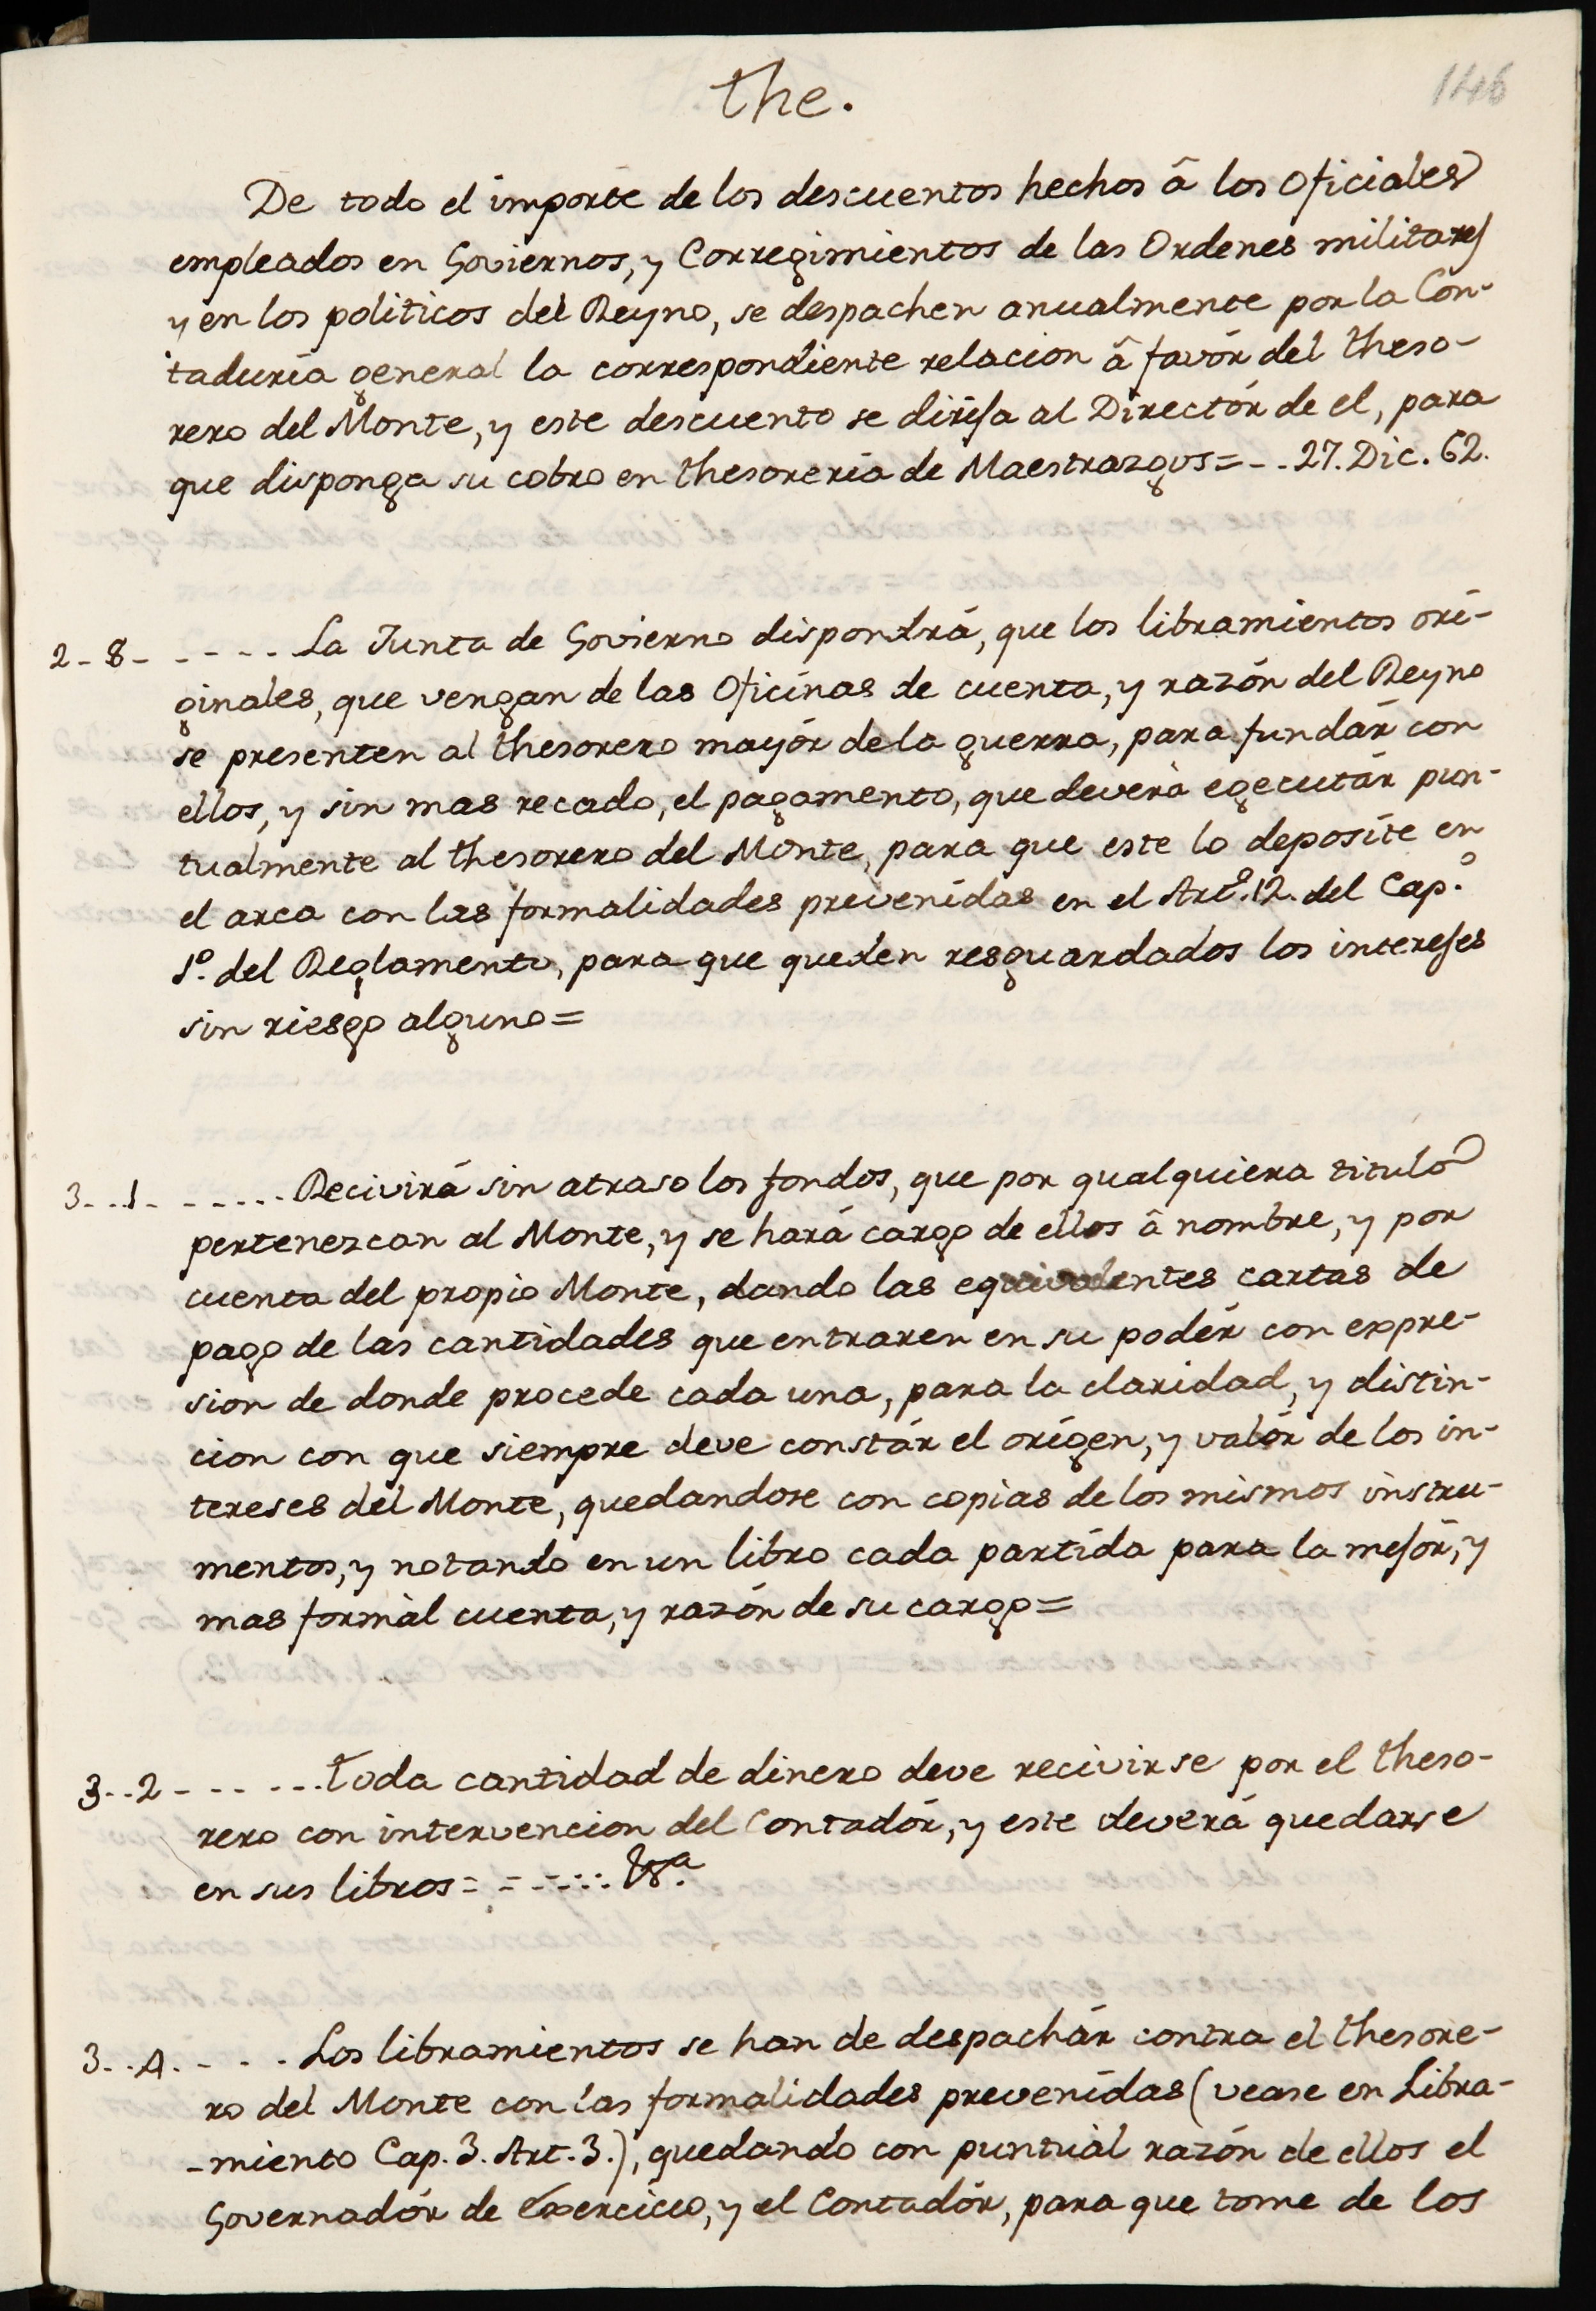 the.
146
De todo el importe de los descuentos hechos â los Oficiales
empleados en Goviernos, y Corregimientos de las Ordenes militares
y en los politicos del Reyno, se despachen anualmente por la Con-
taduría general la correspondiente relacion â favór del theso-
rero del Monte, y este descuento se dirija al Directór de el, para
que disponga su cobro en thesorería de Maestrazgos=--.27. Dic. 62.
2-8------La Junta de Govierno dispondrá, que los libramientos ori-
ginales, que vengan de las Oficinas de cuenta, y razón del Reyno
se presenten al thesorero mayór de la guerra, para fundár con
ellos, y sin mas recado, el pagamento, que deverá egecutár pun-
tualmente al thesorero del Monte, para que este lo deposite en
el arca con las formalidades prevenidas en el Artº. 12. del Cap.º
1º. del Reglamento, para que queden resguardados los intereses
sin riesgo alguno=
3-..1------Recivirá sin atraso los fondos, que por qualquiera titulo
pertenezcan al Monte, y se hará cargo de ellos â nombre, y por
cuenta del propio Monte, dando las equivalentes cartas de
pago de las cantidades que entraren en su podér con expre-
sion de donde procede cada una, para la claridad, y distin-
cion con que siempre deve constár el orígen, y valór de los in-
tereses del Monte, quedandose con copias de los mismos instru-
mentos, y notando en un libro cada partída para la mejór, y
mas formàl cuenta, y razón de su cargo=
3-.-2------toda cantidad de dinero deve recivirse por el theso-
rero con intervencion del Contadór, y este deverá quedarse
en sus libros=
3-.-4.----Los libramientos se han de despachár contra el thesore-
ro del Monte con las formalidades prevenídas (vease en Libra-
-miento Cap. 3. Art. 3.), quedando con puntuál razón de ellos el
Governadór de Exercicio, y el Contadór, para que tome de los